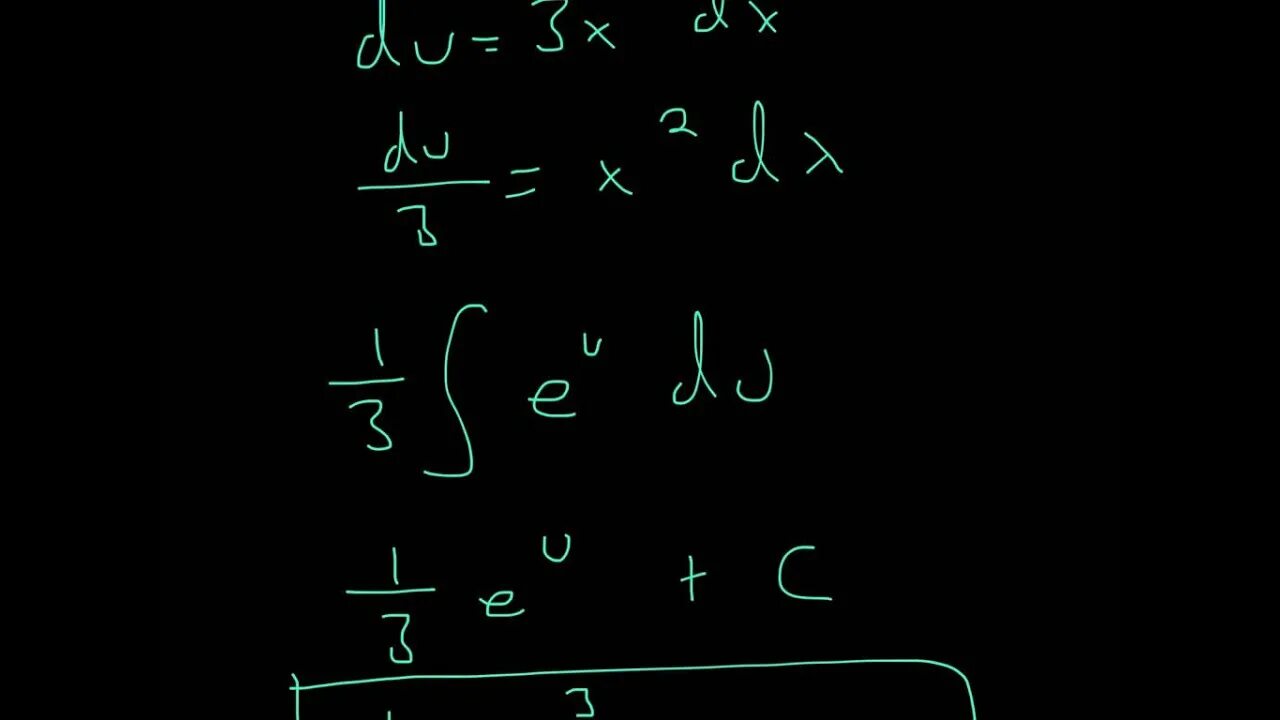 du = 3x dx
du/3 = x² dx
1/3 ∫ e^u du
1/3 e^u + C
3